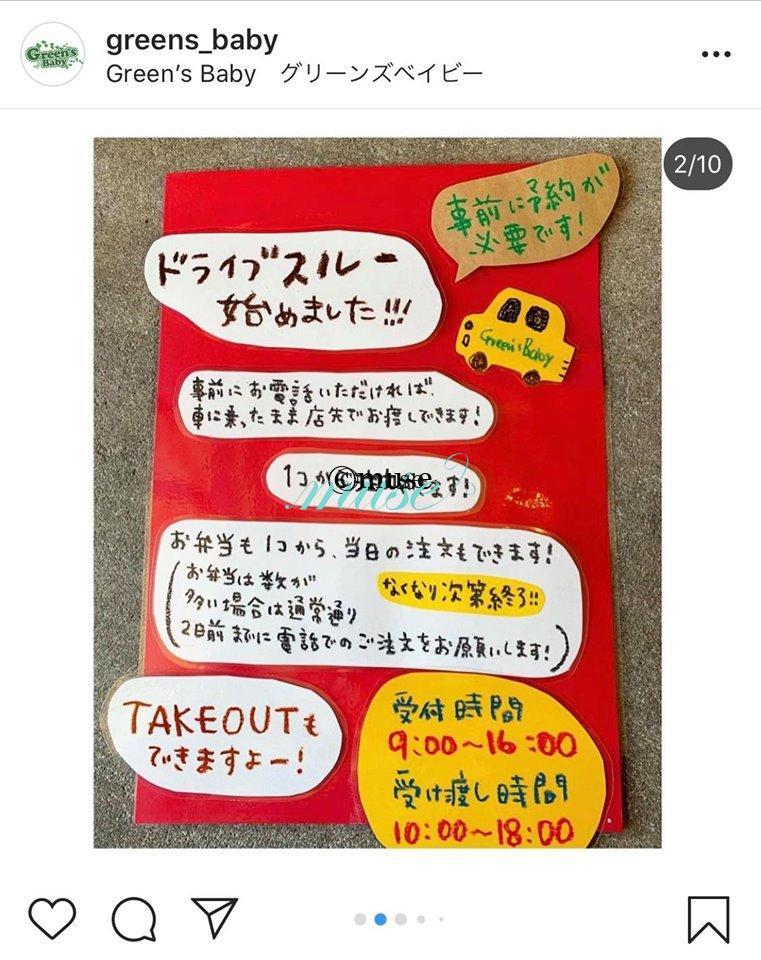 greens_baby
Green's Baby グリーンズベイビー
Green's Baby
2/10
事前に予約が
必要です!
ドライブスルー
始めました!!!
Green's Baby
事前にお電話いただければ
車に乗ったまま店先でお渡しできます!
1コか
ます!
©muse
muse
お弁当も1コから、当日の注文もできます!
(お弁当は数が
多い場合は通常通り
2日前までに電話でのご注文をお願いします!)
なくなり次第終了!!
TAKEOUTも
できますよー!
受付時間
9:00~16:00
受け渡し時間
10:00~18:00